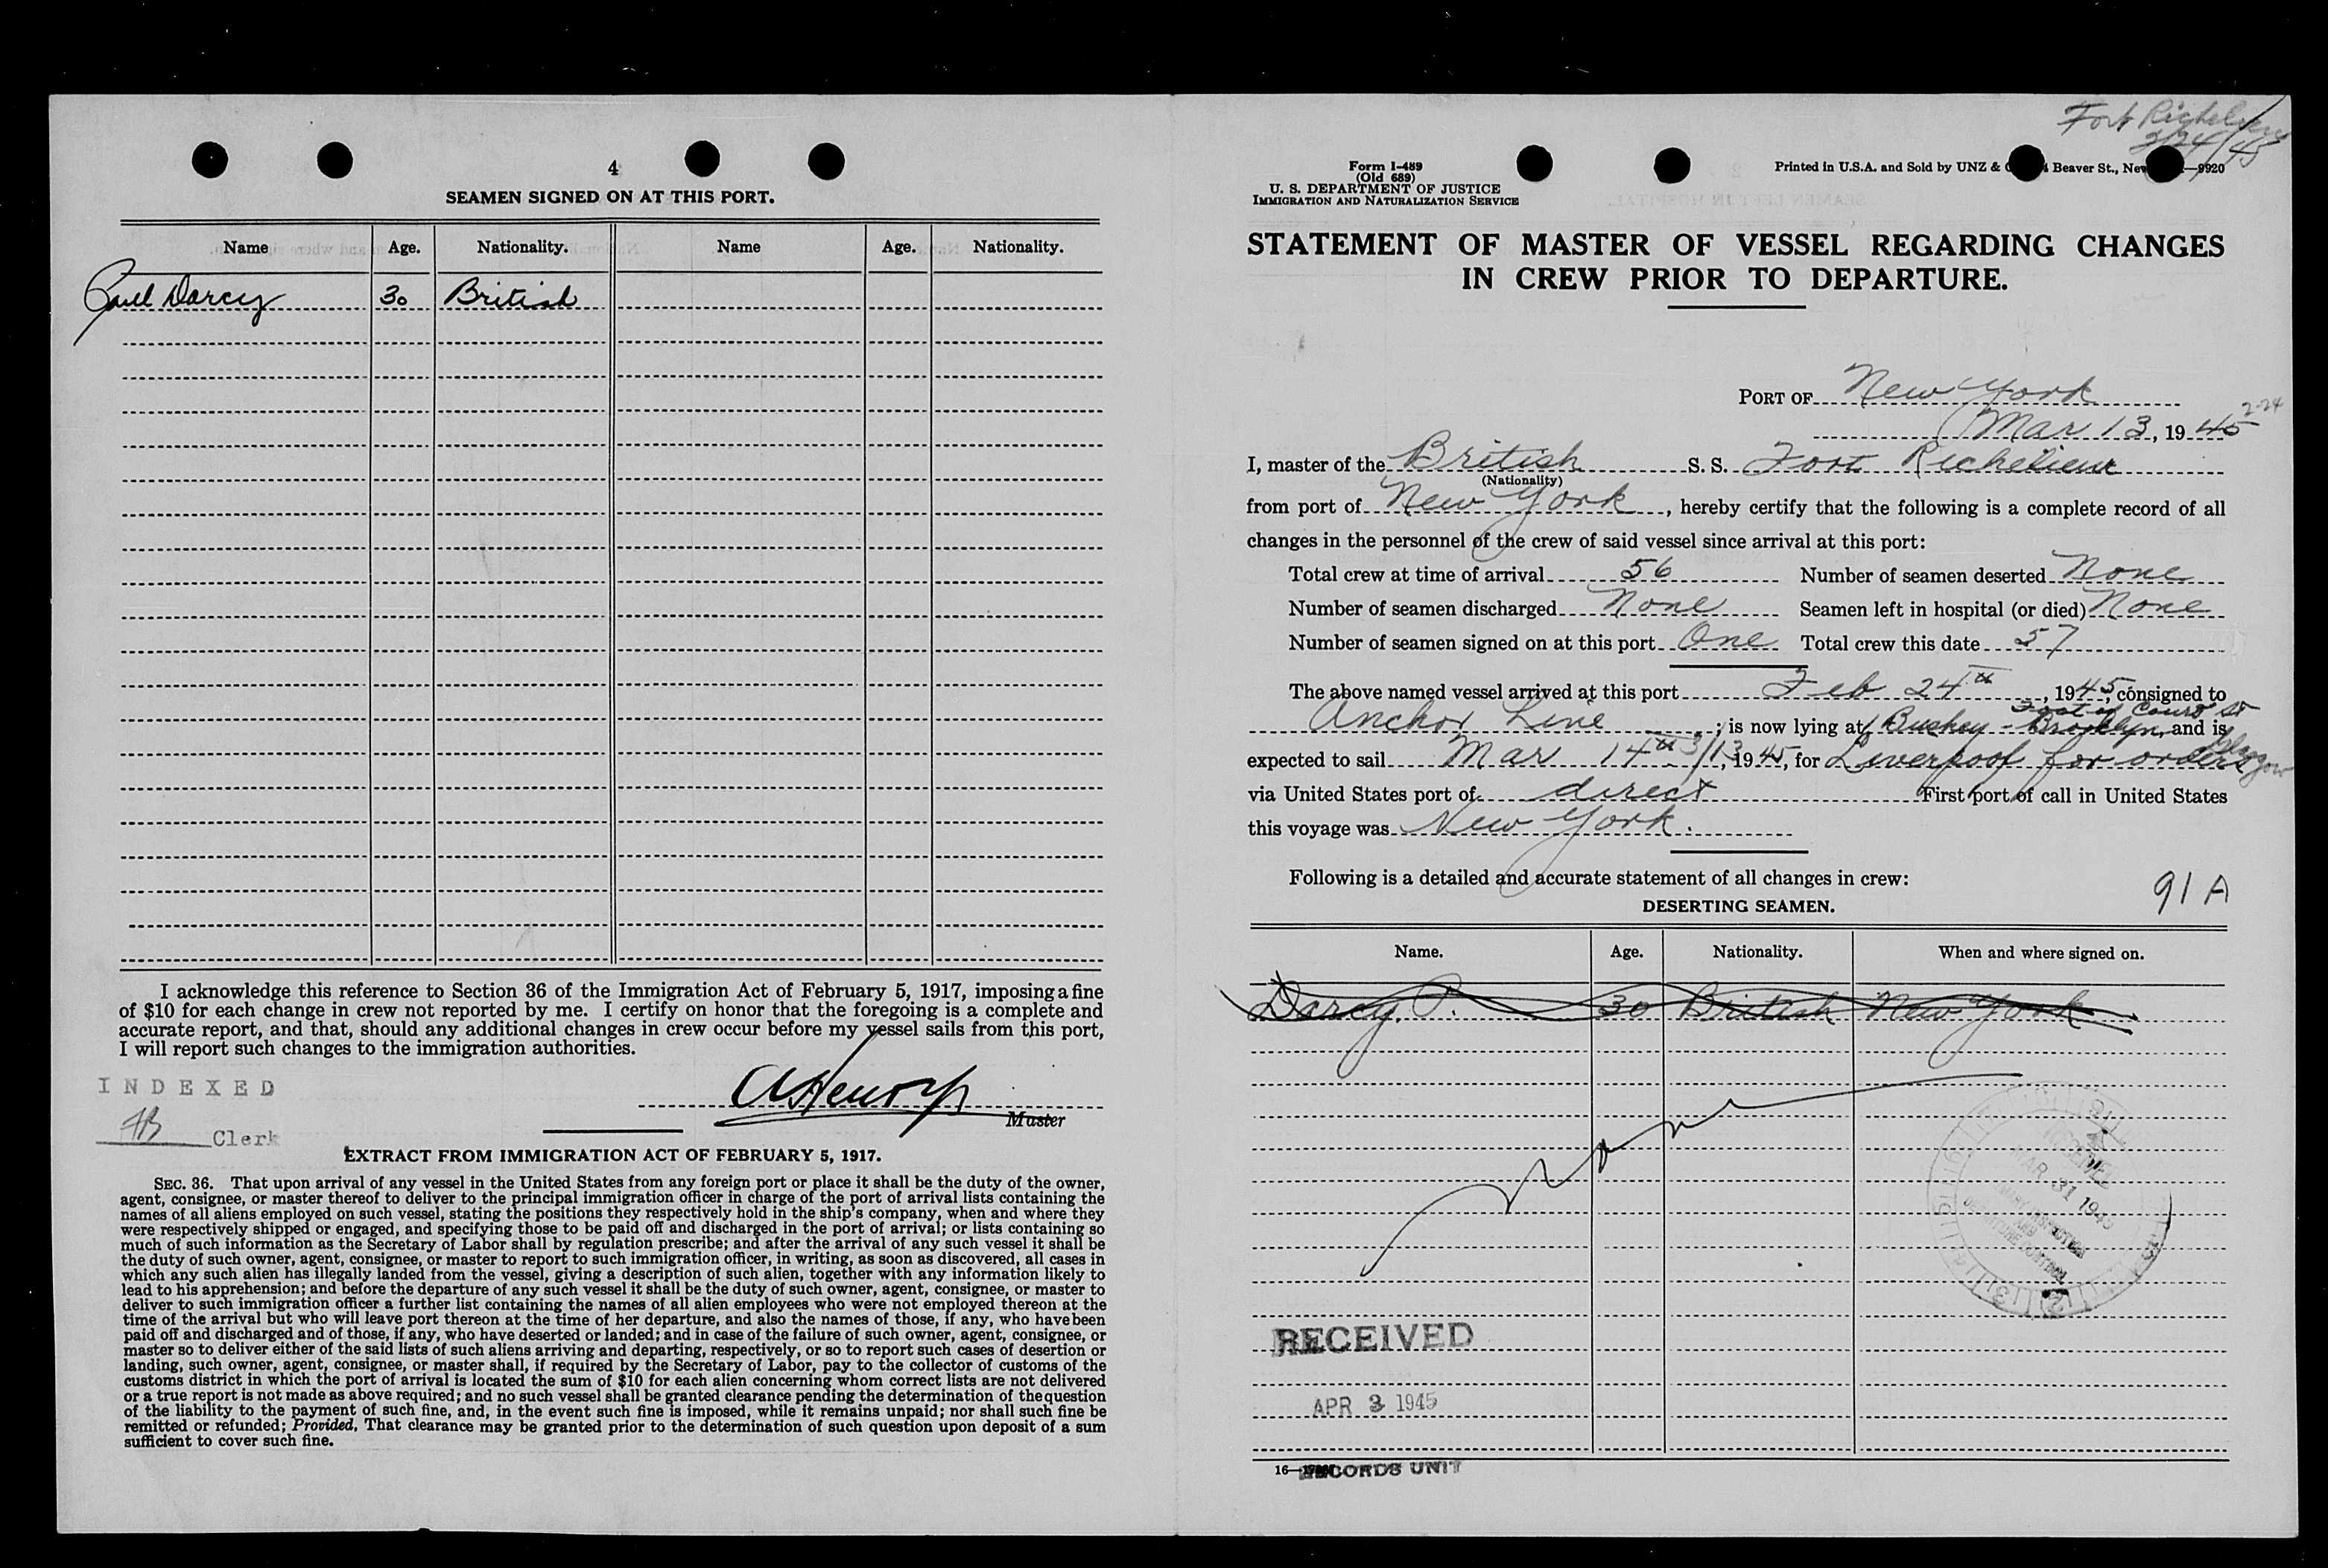 4
SEAMEN SIGNED ON AT THIS PORT.
Name Age. Nationality. Name Age. Nationality.
Paul Darcy 30 British
I acknowledge this reference to Section 36 of the Immigration Act of February 5, 1917, imposing a fine
of $10 for each change in crew not reported by me. I certify on honor that the foregoing is a complete and
accurate report, and that, should any additional changes in crew occur before my vessel sails from this port,
I will report such changes to the immigration authorities.
INDEXED
Master
Clerk
EXTRACT FROM IMMIGRATION ACT OF FEBRUARY 5, 1917.
SEC. 36. That upon arrival of any vessel in the United States from any foreign port or place it shall be the duty of the owner,
agent, consignee, or master thereof to deliver to the principal immigration officer in charge of the port of arrival lists containing the
names of all aliens employed on such vessel, stating the positions they respectively hold in the ship's company, when and where they
were respectively shipped or engaged, and specifying those to be paid off and discharged in the port of arrival; or lists containing so
much of such information as the Secretary of Labor shall by regulation prescribe; and after the arrival of any such vessel it shall be
the duty of such owner, agent, consignee, or master to report to such immigration officer, in writing, as soon as discovered, all cases in
which any such alien has illegally landed from the vessel, giving a description of such alien, together with any information likely to
lead to his apprehension; and before the departure of any such vessel it shall be the duty of such owner, agent, consignee, or master to
deliver to such immigration officer a further list containing the names of all alien employees who were not employed thereon at the
time of the arrival but who will leave port thereon at the time of her departure, and also the names of those, if any, who have been
paid off and discharged and of those, if any, who have deserted or landed; and in case of the failure of such owner, agent, consignee, or
master so to deliver either of the said lists of such aliens arriving and departing, respectively, or so to report such cases of desertion or
landing, such owner, agent, consignee, or master shall, if required by the Secretary of Labor, pay to the collector of customs of the
customs district in which the port of arrival is located the sum of $10 for each alien concerning whom correct lists are not delivered
or a true report is not made as above required; and no such vessel shall be granted clearance pending the determination of the question
of the liability to the payment of such fine, and, in the event such fine is imposed, while it remains unpaid; nor shall such fine be
remitted or refunded; Provided, That clearance may be granted prior to the determination of such question upon deposit of a sum
sufficient to cover such fine.
Fort Richelieu
2/24/45
Form I-489
(Old 689)
U. S. DEPARTMENT OF JUSTICE
IMMIGRATION AND NATURALIZATION SERVICE
Printed in U.S.A. and Sold by UNZ & Beaver St., New —9920
STATEMENT OF MASTER OF VESSEL REGARDING CHANGES
IN CREW PRIOR TO DEPARTURE.
PORT OF New York
Mar 13, 19 45 2-24
I, master of the British S. S. Fort Richelieu
(Nationality)
from port of New York, hereby certify that the following is a complete record of all
changes in the personnel of the crew of said vessel since arrival at this port:
Total crew at time of arrival 56 Number of seamen deserted None
Number of seamen discharged None Seamen left in hospital (or died) None
Number of seamen signed on at this port One Total crew this date 57
The above named vessel arrived at this port Feb 24th, 1945, consigned to
Foot of Court St
Anchor Line; is now lying at Bushey - Brooklyn, and is
Glasgow
expected to sail Mar 14th 3/13, 1945, for Liverpool for orders
via United States port of direct First port of call in United States
this voyage was New York.
Following is a detailed and accurate statement of all changes in crew:
91 A
DESERTING SEAMEN.
Name. Age. Nationality. When and where signed on.
Darcy, P. 30 British New York
None
RECEIVED
MAR 31 1945
RECEIVED
APR 3 1945
16—
RECORDS UNIT